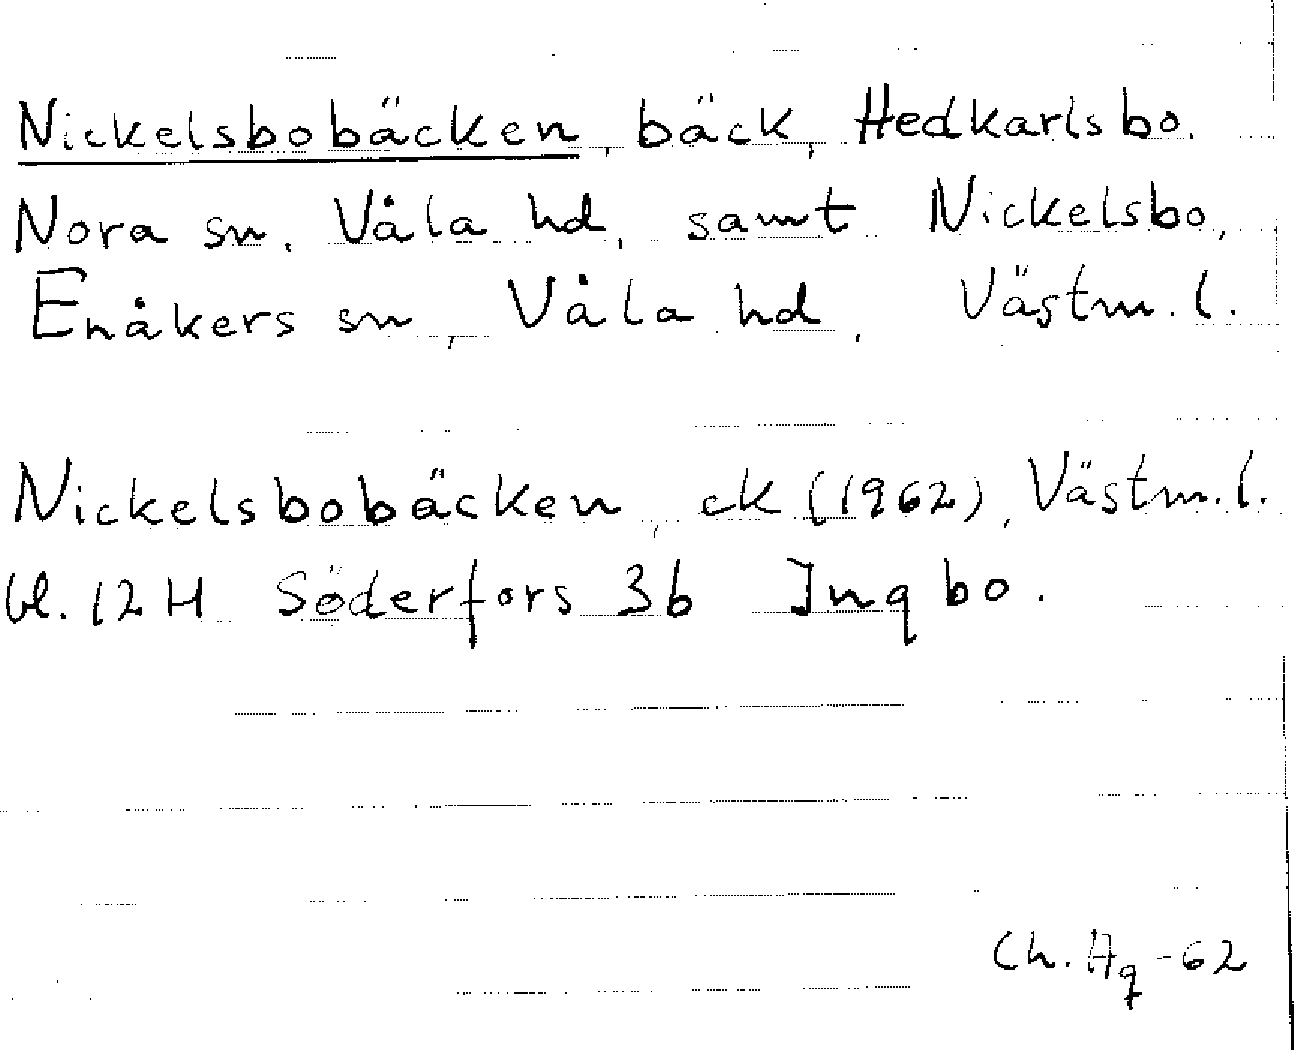 Nickelsbobäcken, bäck, Hedkarlsbo.
Nora sn. Våla hd, samt Nickelsbo,
Enåkers sn, Våla hd, Västm. l.
Nickelsbobäcken, ek (1962), Västm. l.
bl. 12 H Söderfors 3b Ingbo.
Ch. Hg -62